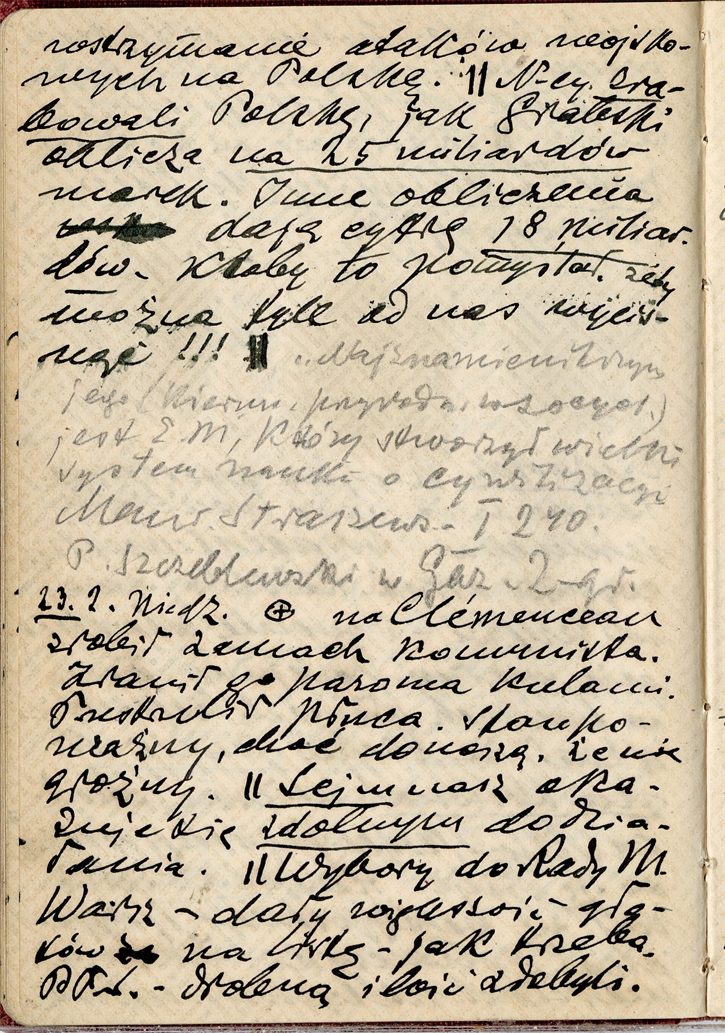 wstrzymanie ataków wojsko-
wych na Polskę. || N-cy zra-
bowali Polskę, jak Grabski
oblicza na 25 miliardów
marek. Inne obliczenia
dają cyfrę 18 miliar-
dów. Ktoby to pomyślał, żeby
można tyle od nas wycis-
nąć !!! || „Najznamienitszym
jego (kierun. przyrodn. w socyol.)
jest E. M, który stworzył wielki
system nauki o cywilizacyi
Maur. Straszews. - I 240.
P. Szczeblewski w Gaz. 2-gr.
23. 2. Niedz. ⊕ na Clémenceau
zrobił zamach komunista.
Zranił go paroma kulami.
Przestrzelił płuca. Stan po-
ważny, choć donoszą, że nie
groźny. || Sejm nasz oka-
zuje się zdolnym do dzia-
łania. || Wybory do Rady M.
Warsz - dały większość gło-
sów na listę - jak trzeba.
P.P.S. - drobną ilość zdobyli.